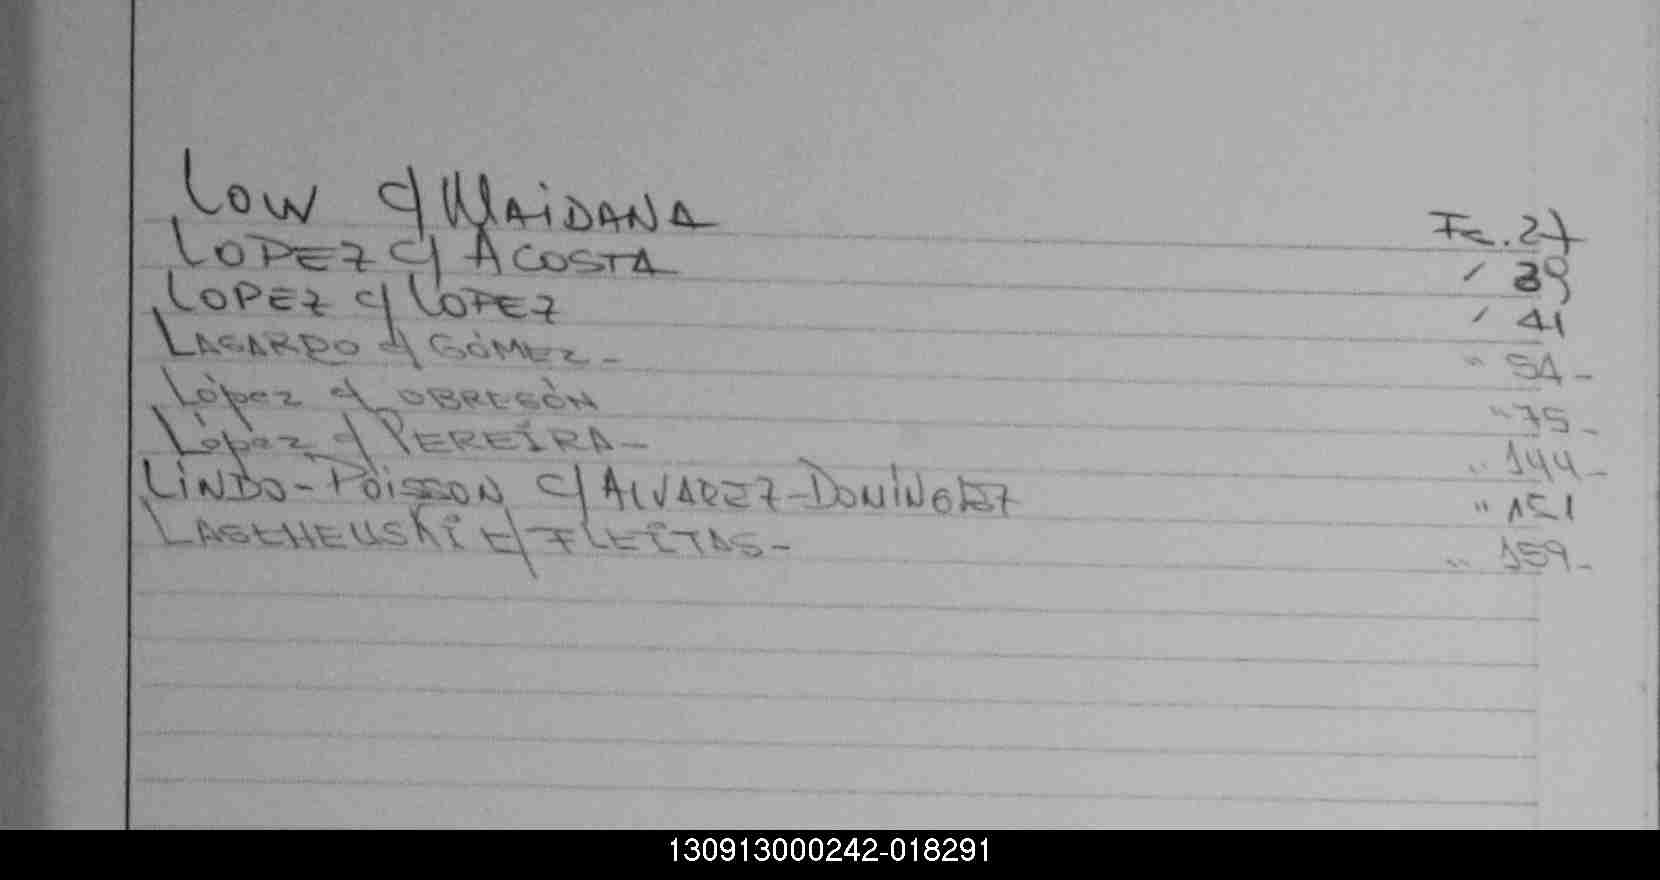 Low c/ Maidana Fc. 27
Lopez c/ Acosta " 39
Lopez c/ Lopez " 41
Lagardo c/ Gómez - " 54 -
López c/ Obregón " 75 -
López c/ Pereira - " 144 -
Lindo-Poisson c/ Alvarez-Dominguez " 151
c/ Fleitas - " 159 -
130913000242-018291